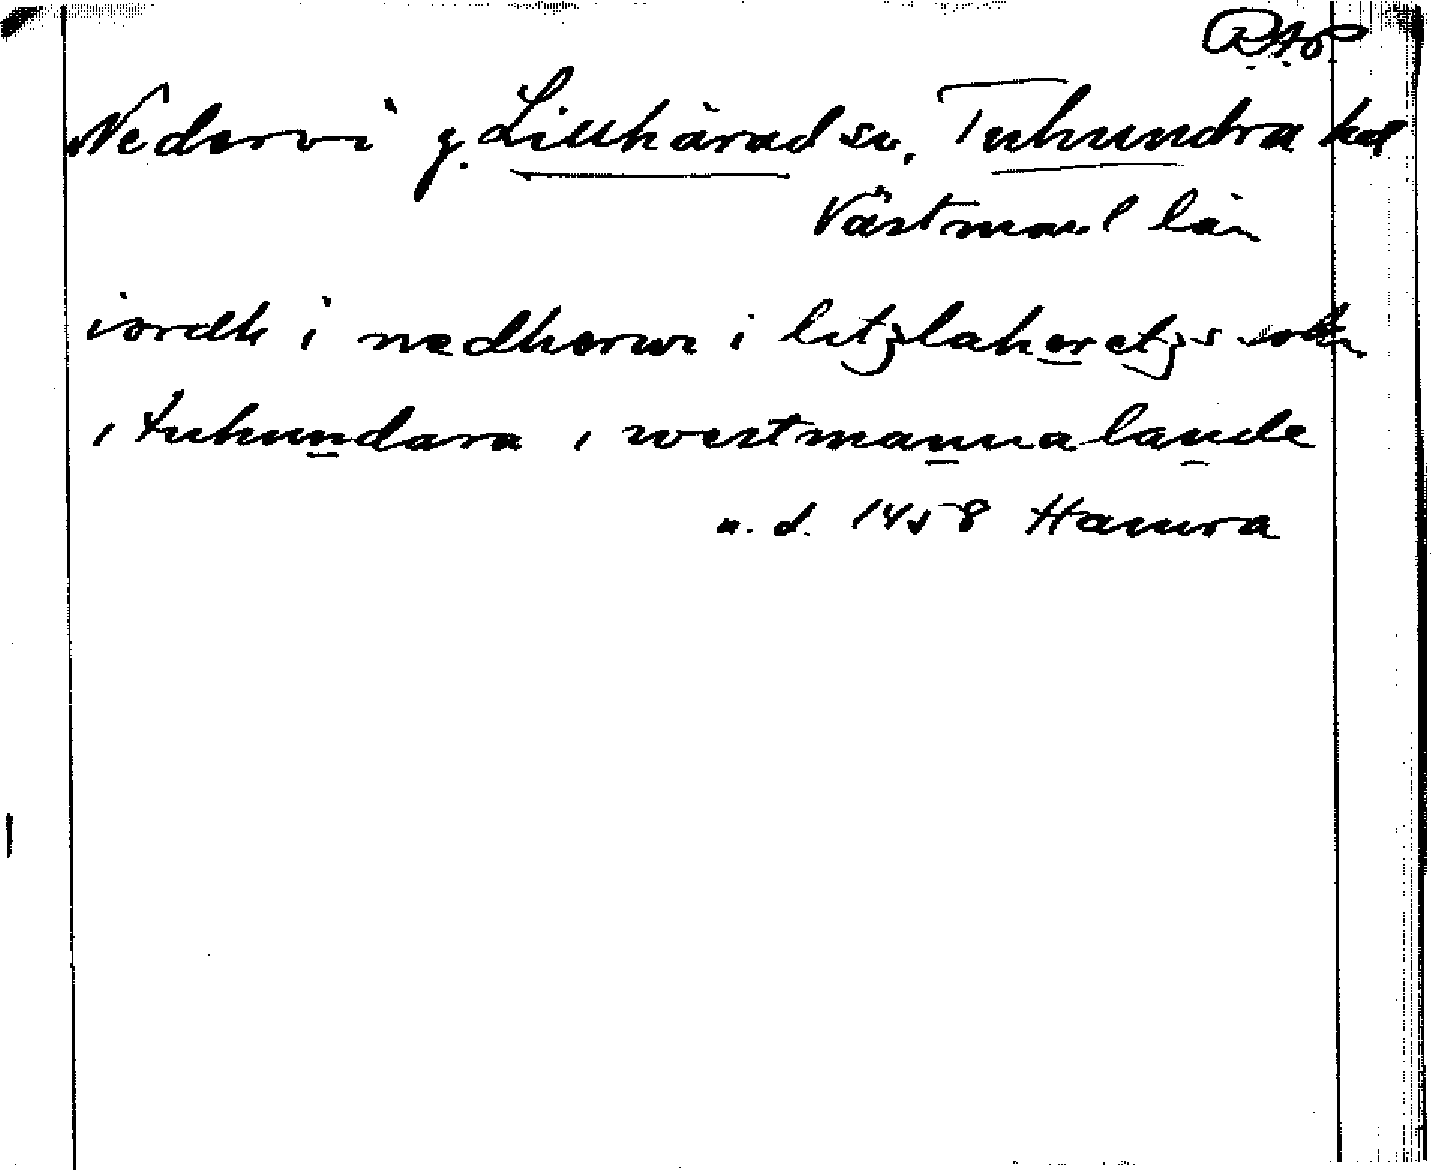 RAp
Nedervi g. Lillhärad sn, Tuhundra hd
Västmanl län
iordh i nedherwi i litzlaheretz sokn
i tuhundara i westmannalande
u. d. 1458 Hamra